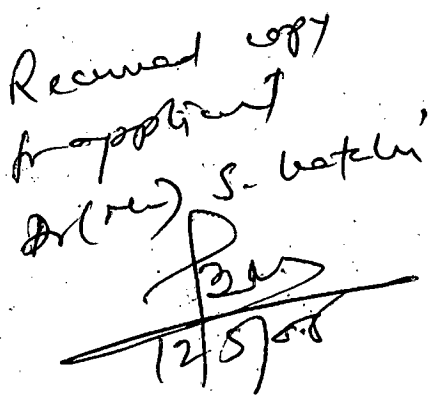 Received copy
for applicant
Dr (Mrs) S.
12/5/